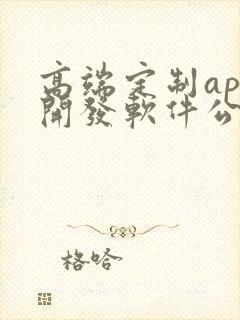 高端定制ap
開發軟件公
格哈